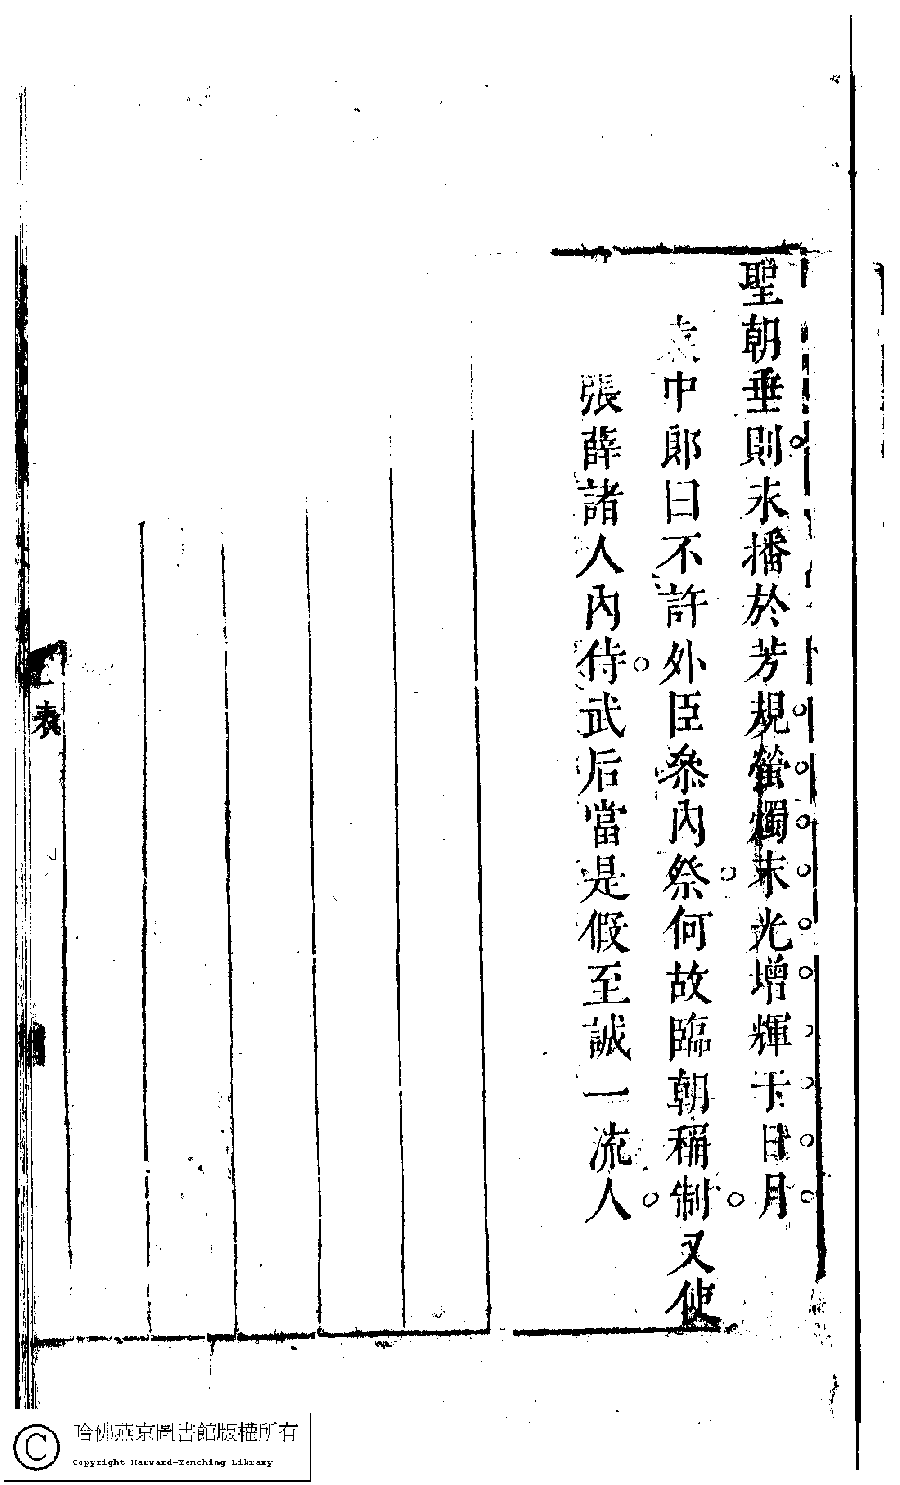 聖朝垂則永播於芳規螢燭末光增輝于日月
袁中郎曰不許外臣叅內祭何故臨朝稱制又使
張薛諸人內侍武后當是假至誠一流人
表
哈佛燕京圖書館版權所有
Copyright Harvard-Yenching Library